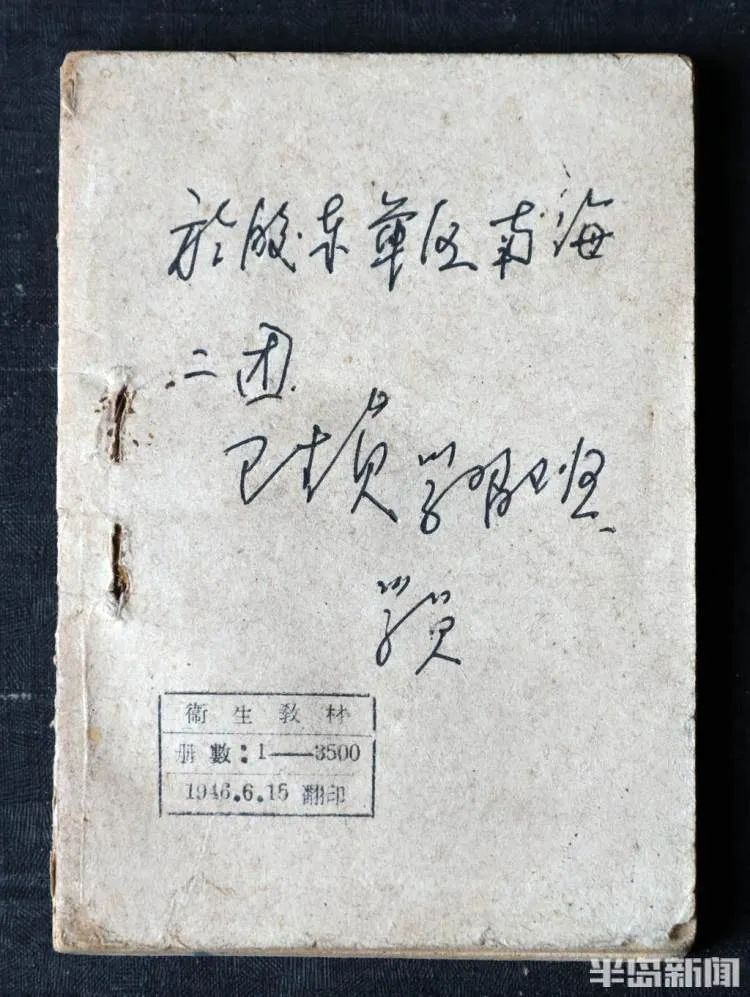 於胶东军区南海
二团
卫生员学习班
学员
衛生教材
册數：1——3500
1946.6.15 翻印
半岛新闻